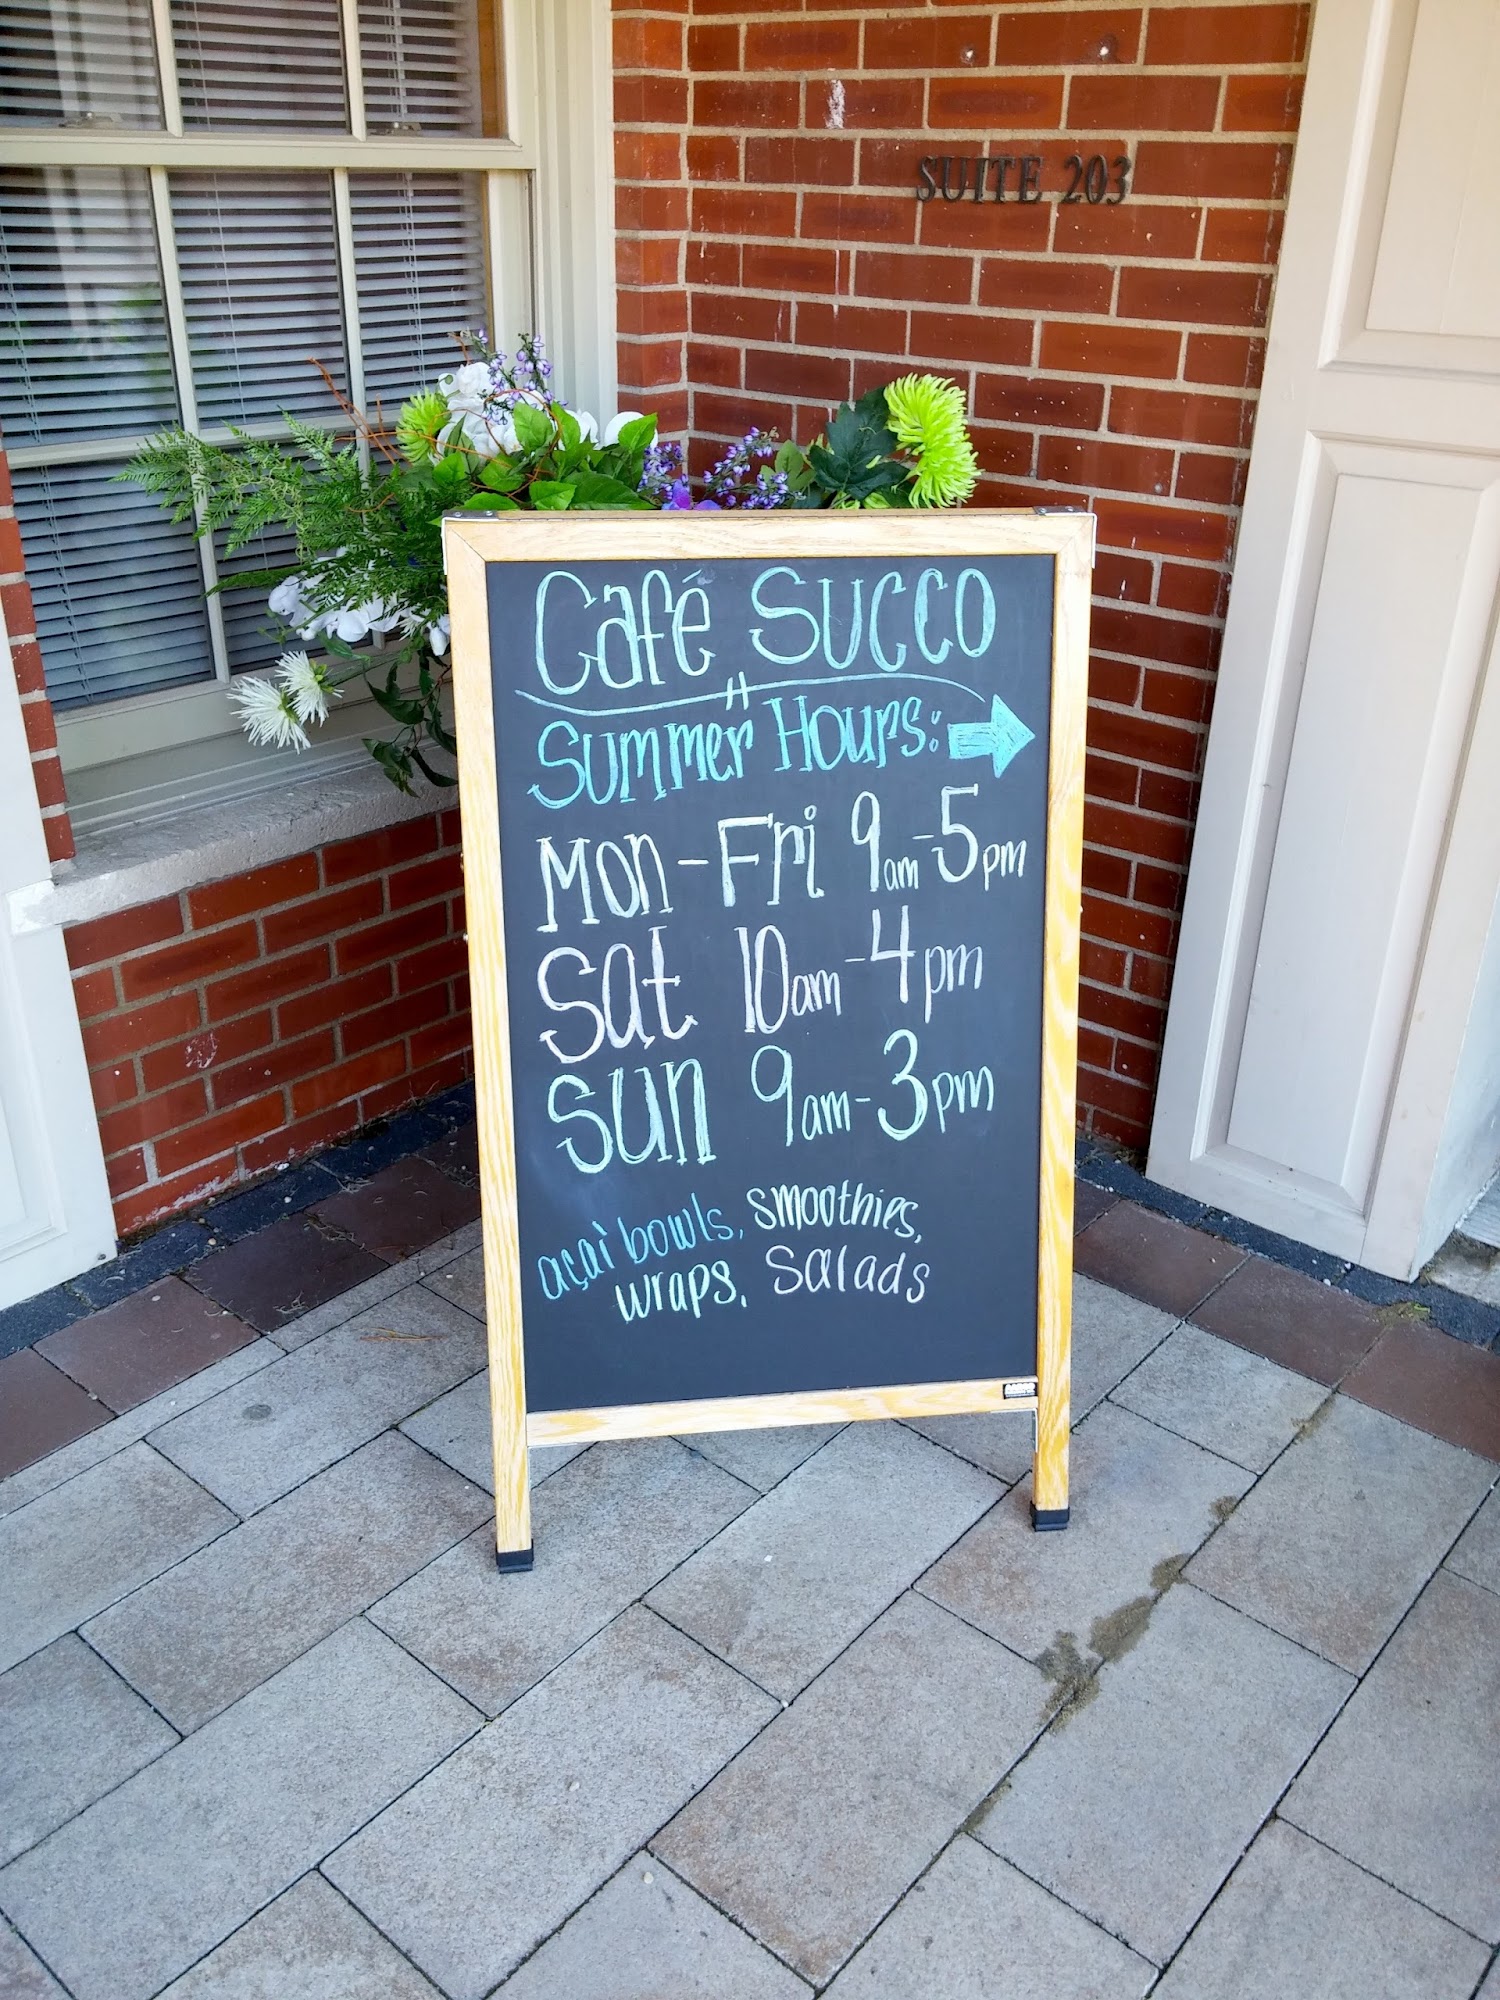 SUITE 203
Café Succo
Summer Hours:
Mon-Fri 9am-5pm
Sat 10am-4pm
Sun 9am-3pm
açaì bowls, smoothies,
wraps, salads